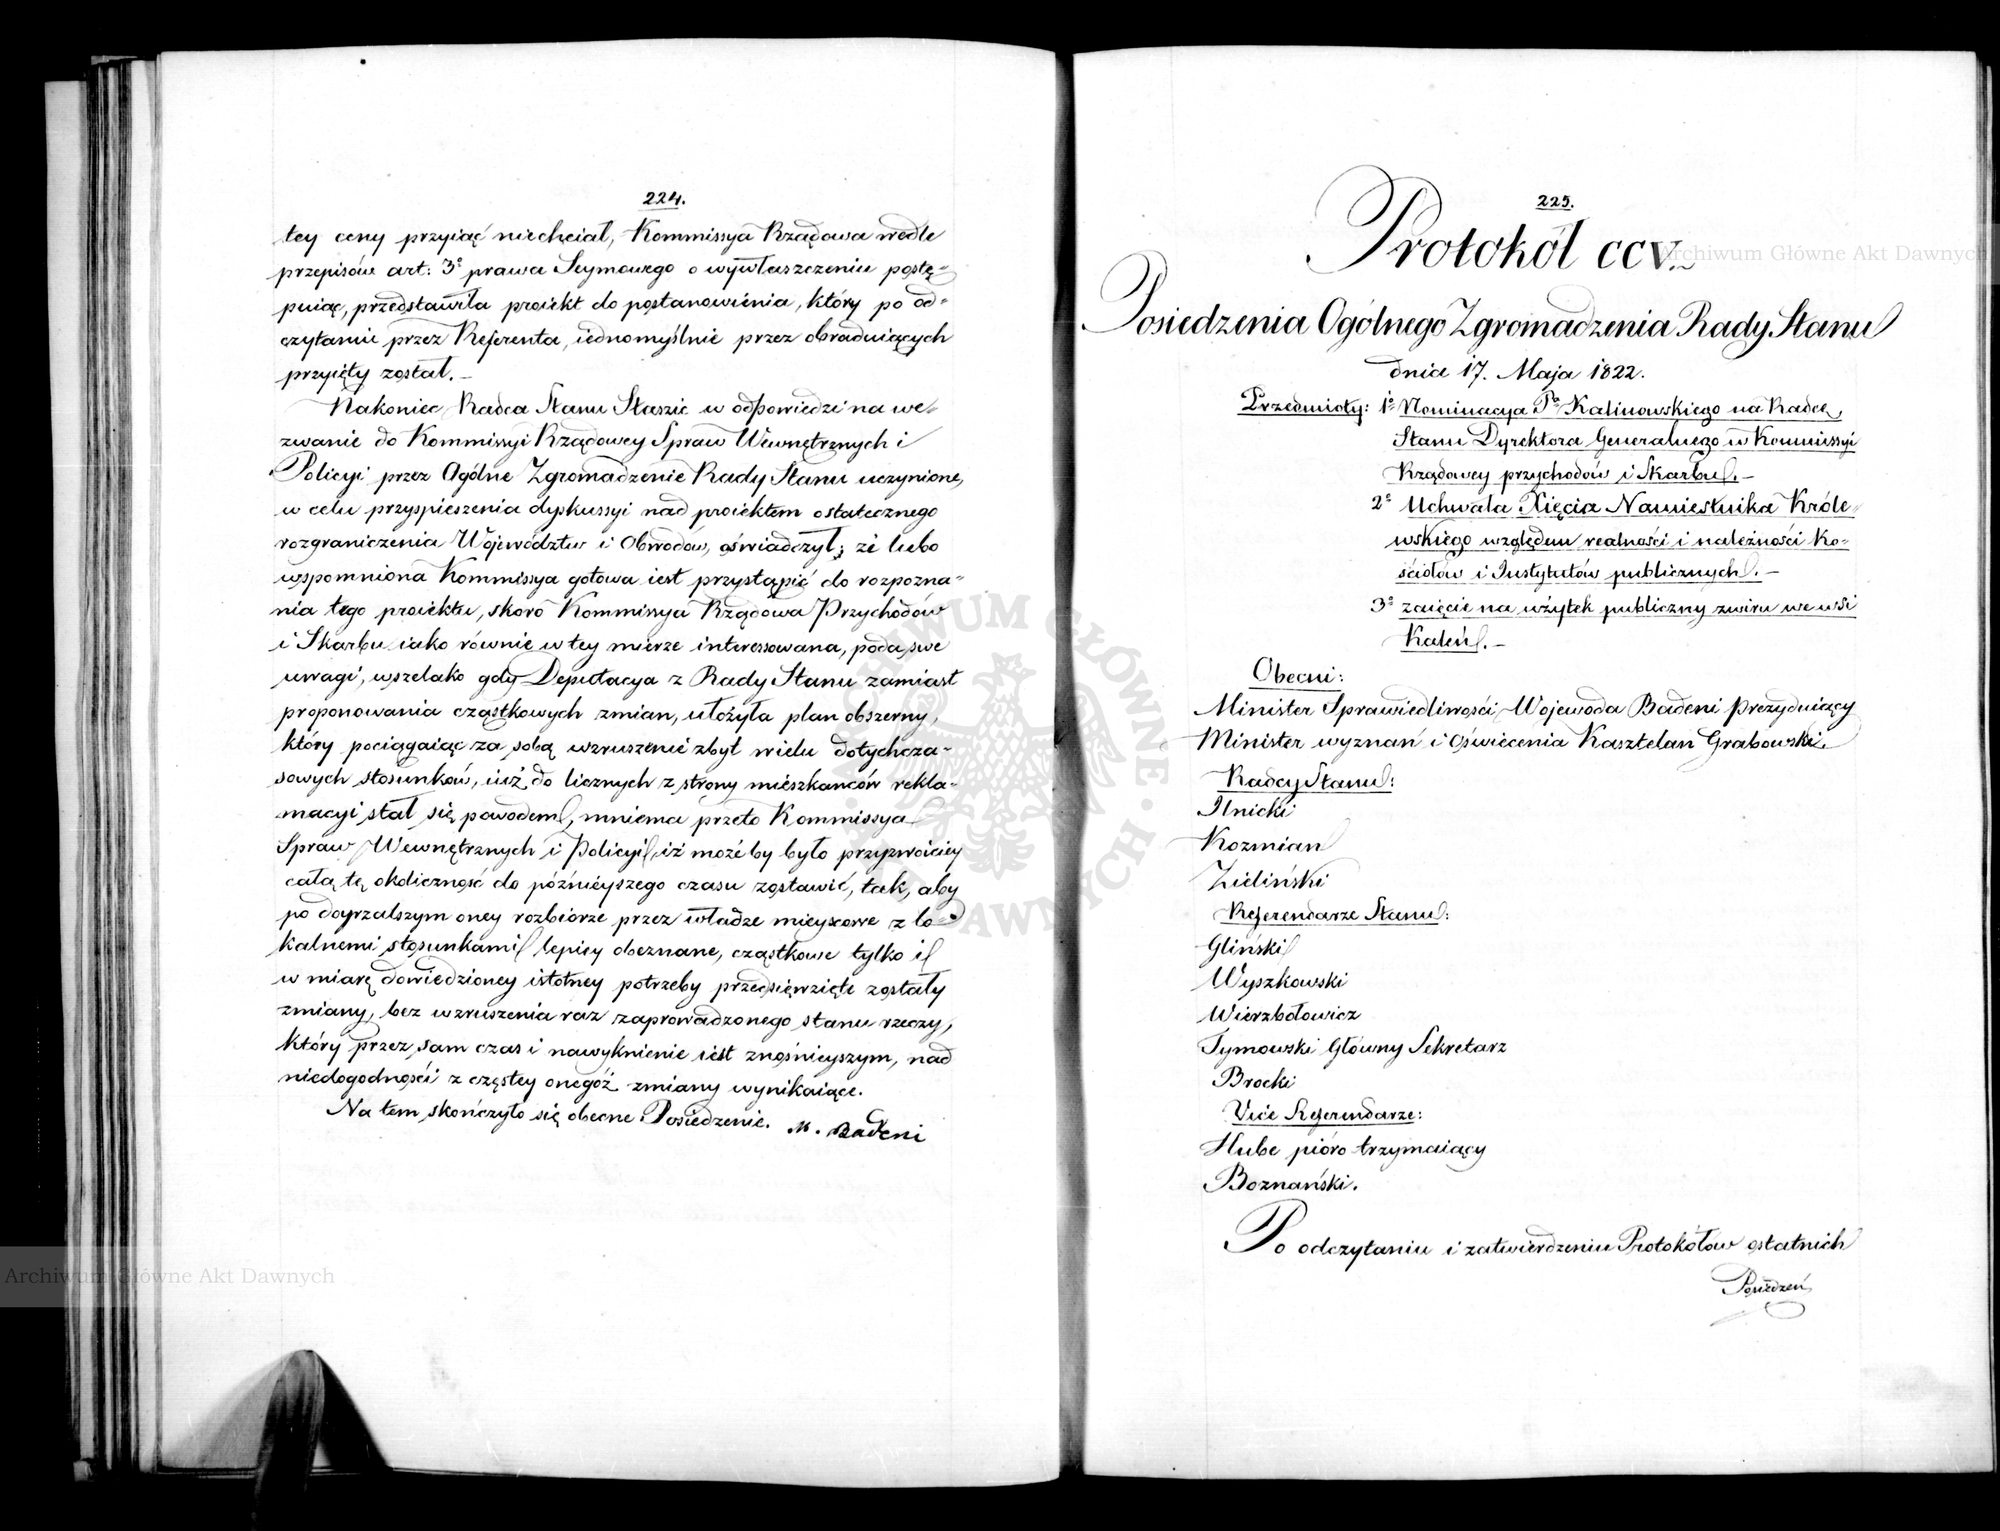 224.
tey ceny przyiąć niechciał, Kommissya Rządowa wedle
przepisów art: 3º prawa Seymowego o wywłaszczeniu postę-
puiąc, przedstawiła proiekt do postanowienia, który po od-
czytaniu przez Referenta, iednomyślnie przez obraduiących
przyięty został. —
Nakoniec Radca Stanu Staszic w odpowiedzi na we-
zwanie do Kommissyi Rządowey Spraw Wewnętrznych i
Policyi przez Ogólne Zgromadzenie Rady Stanu uczynione,
w celu przyspieszenia dyskussyi nad proiektem ostatecznego
rozgraniczenia Województw i Obwodów, oświadczył; że lubo
wspomniona Kommissya gotowa iest przystąpić do rozpozna-
nia tego proiektu, skoro Kommissya Rządowa Przychodów
i Skarbu iako równie w tey mierze interessowana, poda swe
uwagi, wszelako gdy Deputacya z Rady Stanu zamiast
proponowania cząstkowych zmian, ułożyła plan obszerny,
który pociągaiąc za sobą wzruszenie zbyt wielu dotychcza-
sowych stosunków, iuż do licznych z strony mieszkańców rekla-
macyi stał się powodem, mniema przeto Kommissya
Spraw Wewnętrznych i Policyi, iż możeby było przyzwoiciey
całą tę okoliczność do późnieyszego czasu zostawić, tak, aby
po doyrzalszym oney rozbiorze przez władze mieyscowe z lo-
kalnemi stosunkami lepiey obeznane, cząstkowe tylko i
w miarę dowiedzioney istotney potrzeby przedsięwzięte zostały
zmiany, bez wzruszenia raz zaprowadzonego stanu rzeczy,
który przez sam czas i nawyknienie iest znośnieyszym, nad
niedogodności z częstey onegóż zmiany wynikaiące.
Na tem skończyło się obecne Posiedzenie. M. Badeni
225.
Protokół CCV.
Posiedzenia Ogólnego Zgromadzenia Rady Stanu
dnia 17. Maja 1822.
Przedmioty: 1º Nominacya Pa Kalinowskiego na Radcę
Stanu Dyrektora Generalnego w Kommissyi
Rządowey przychodów i Skarbu. —
2º Uchwała Xięcia Namiestnika Króle-
wskiego względem realności i należności Ko-
ściołów i Instytutów publicznych. —
3º zaięcie na użytek publiczny żwiru we wsi
Kaleń. —
Obecni:
Minister Sprawiedliwości Wojewoda Badeni Prezyduiący
Minister wyznań i Oświecenia Kasztelan Grabowski.
Radcy Stanu:
Ilnicki
Kozmian
Zieliński
Referendarze Stanu:
Gliński
Wyszkowski
Wierzbołowicz
Tymowski Główny Sekretarz
Brocki
Vice Referendarze:
Hube pióro trzymaiący
Boznański.
Po odczytaniu i zatwierdzeniu Protokółów ostatnich
Posiedzeń
Archiwum Główne Akt Dawnych
Archiwum Główne Akt Dawnych
ARCHIWUM GŁÓWNE AKT DAWNYCH